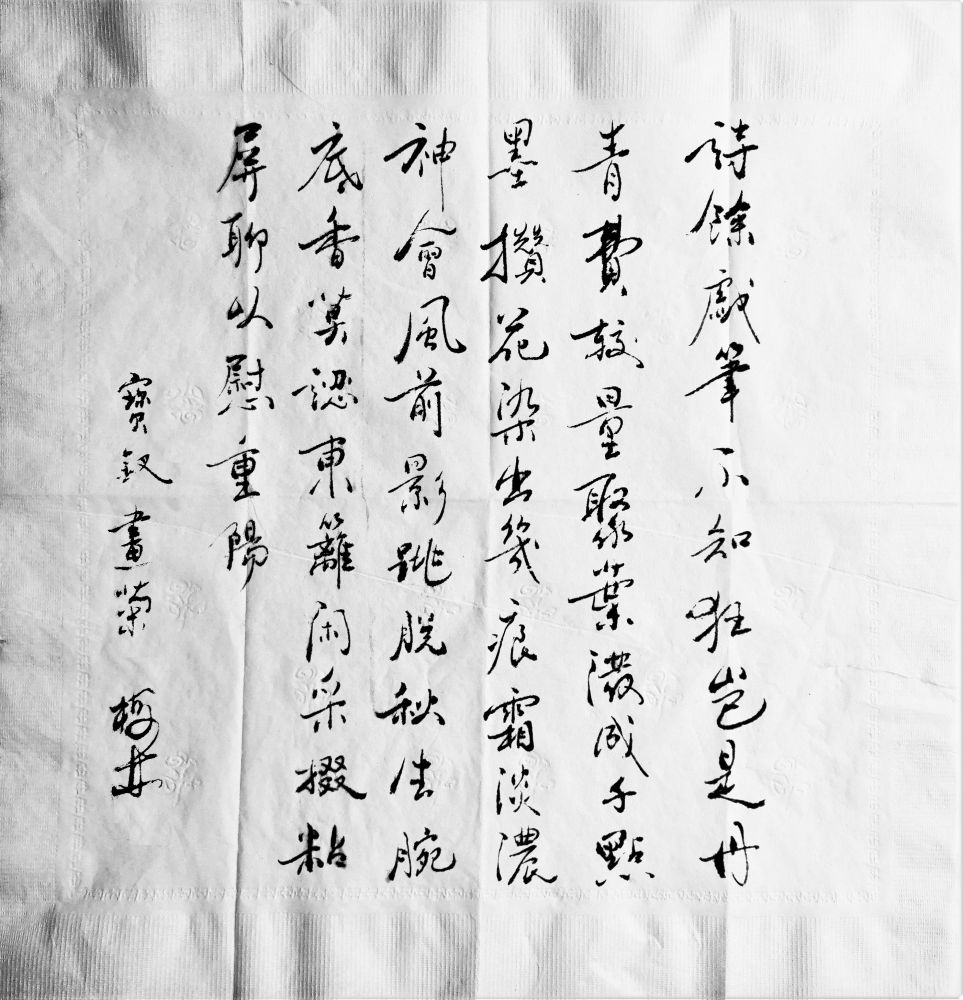 詩餘戲筆不知狂豈是丹
青費較量聚葉潑成千點
墨攢花染出幾痕霜淡濃
神會風前影跳脫秋生腕
底香莫認東籬闲采掇粘
屏聊以慰重陽
寶釵畫菊